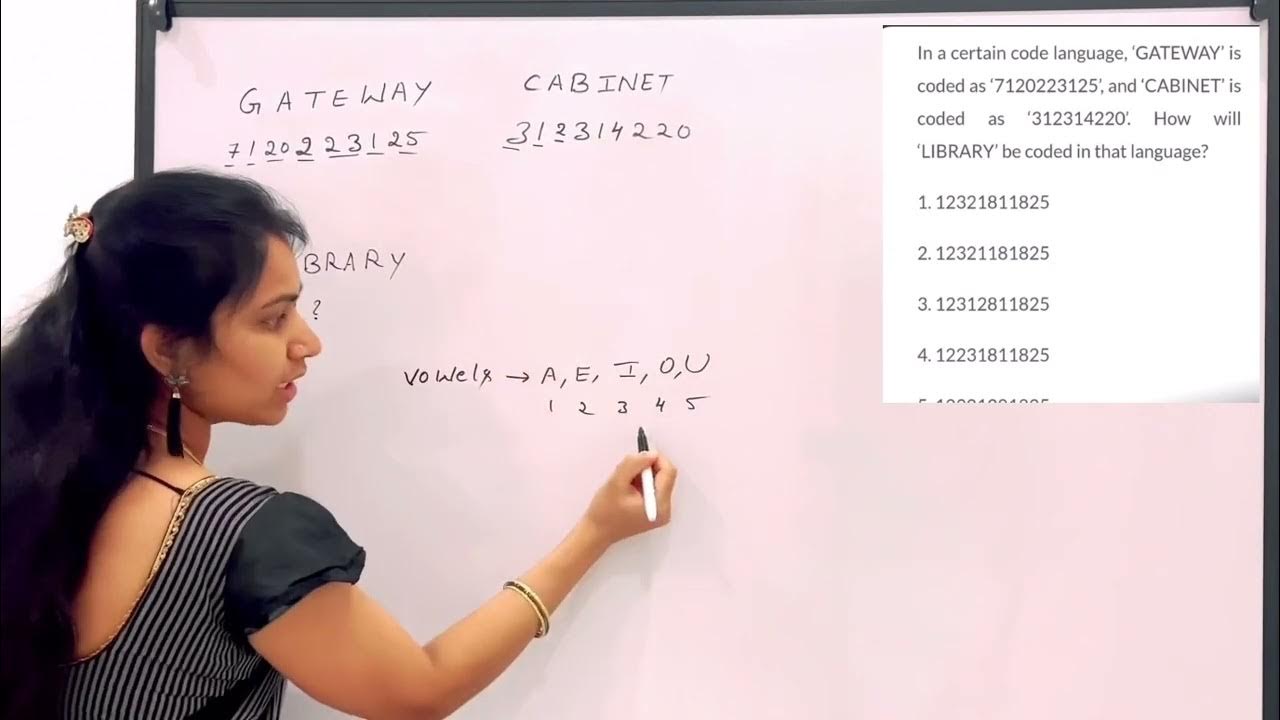 GATEWAY
7120223125
CABINET
312314220
BRARY
?
vowels → A, E, I, O, U
1 2 3 4 5
In a certain code language, ‘GATEWAY’ is
coded as ‘7120223125’, and ‘CABINET’ is
coded as ‘312314220’. How will
‘LIBRARY’ be coded in that language?
1. 12321811825
2. 12321181825
3. 12312811825
4. 12231811825